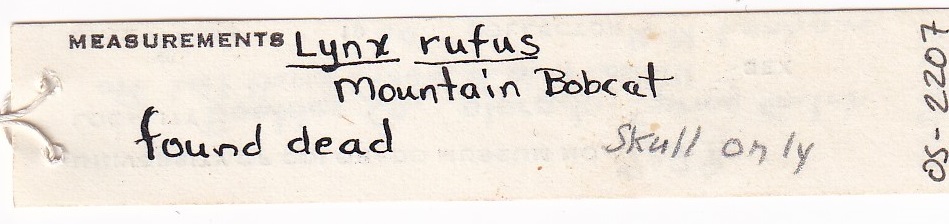 MEASUREMENTS Lynx rufus
Mountain Bobcat
found dead Skull only
05-2207